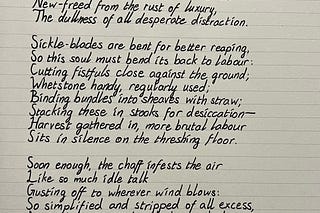 New-freed from the rust of luxury,
The dullness of all desperate distraction.
Sickle-blades are bent for better reaping,
So this soul must bend its back to labour:
Cutting fistfuls close against the ground;
Whetstone handy, regularly used;
Binding bundles into sheaves with straw;
Stacking these in stooks for desiccation—
Harvest gathered in, more brutal labour
Sits in silence on the threshing floor.
Soon enough, the chaff infests the air
Like so much idle talk
Gusting off to wherever wind blows:
So simplified and stripped of all excess,